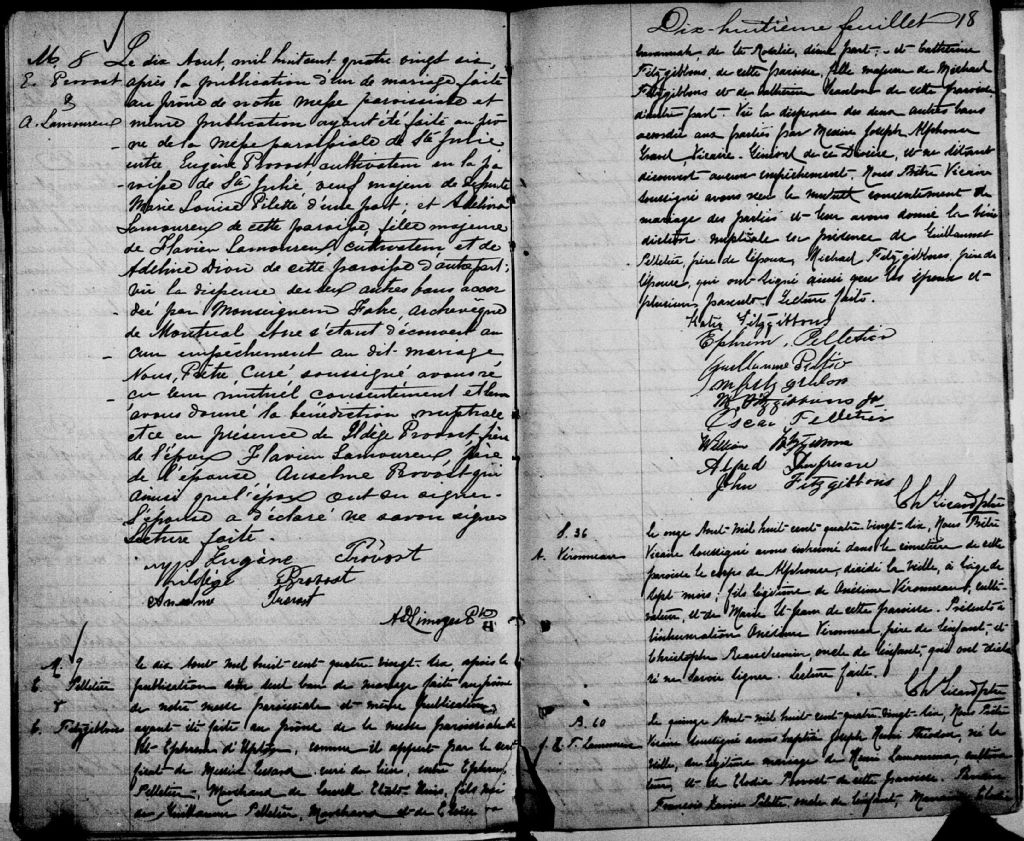 M. 8
E. Provost
&
A. Lamoureux
Le dix Aout, mil huit cent quatre vingt six,
après la publication d'un de mariage, faite
au prône de notre messe paroissiale et
même publication ayant été faite au prô
ne de la messe paroissiale de Ste Julie,
entre Eugène Provost, cultivateur en la pa
roisse de Ste Julie, veuf majeur de défunte
Marie Louise Pilette d'une part; et Adelina
Lamoureux de cette paroisse, fille majeure
de Flavien Lamoureux, cultivateur et de
Adeline Dion de cette paroisse d'autre part;
vu la dispense des deux autres bans accor
dée par Monseigneur Fabre, archevêque
de Montréal et ne s'étant découvert au
cun empêchement au dit mariage
Nous, Prêtre, Curé, soussigné avons re
çu leur mutuel consentement et leur
avons donné la bénédiction nuptiale
et ce en présence de Ildège Provost, frère
de l'époux Flavien Lamoureux, père
de l'épouse, Anselme Provost qui
ainsi que l'époux ont su signer.
L'épouse a déclaré ne savoir signer
Lecture faite.
Eugène Provost
Hildège Provost
Provost
Limoges Ptre
M. 9
E. Pelletier
&
C. Fitzgibbons
Le dix Aout mil huit-cent quatre vingt-six, après la
publication d'un seul ban de mariage faite au prône
de notre messe paroissiale et même publication
ayant été faite au prône de la messe paroissiale de
St Ephrem d'Upton, comme il appert par le certi
ficat de Messire curé du lieu, entre Ephrem
Pelletier, Marchand de Etats Unis, fils mi
de Guillaume Pelletier, Marchand et de Eloïse
Dix-huitième feuillet 18
de Ste Rosalie, d'une part, et Catherine
Fitzgibbons, de cette paroisse, fille majeure de Michael
Fitzgibbons et de Catherine de cette paroisse
d'autre part. Vu la dispense des deux autres bans
accordée aux parties par Messire Joseph Alphonse
Gravel, Vicaire-Général de ce Diocèse, et ne s'étant
découvert aucun empêchement. Nous Prêtre Vicaire
soussigné avons reçu le mutuel consentement de
mariage des parties et leur avons donné la béné
diction nuptiale en présence de Guillaume
Pelletier, frère de l'époux, Michael Fitzgibbons, père de
l'épouse, qui ont signé ainsi que les époux et
plusieurs parents. Lecture faite.
Katie Fitzgibbons
Ephrem Pelletier
Guillaume
M Fitzgibbons
M. Fitzgibbons Jr
Oscar Pelletier
William Fitzgibbons
Alfred Dufresne
John Fitzgibbons
Ch Sicard ptre
S. 36
A. Vironneau
Le onze Aout mil huit-cent-quatre-vingt-six, Nous Prêtre
Vicaire soussigné avons inhumé dans le cimetière de cette
paroisse le corps de Alphonse, décédé la veille, à l'âge de
sept mois, fils légitime de Onésime Vironneau, culti-
vateur, et de Marie St-Jean de cette paroisse. Présents à
l'inhumation Onésime Vironneau, père de l'enfant, et
Christophe oncle de l'enfant, qui ont décla
ré ne savoir signer. Lecture faite.
Ch Sicard ptre
B. 60
J. H. T. Lamoureux
Le quinze Aout mil huit-cent-quatre-vingt-six, Nous Prêtre
Vicaire soussigné avons baptisé Joseph Henri Théodore, né la
veille, du légitime mariage de Henri Lamoureux, cultiva
teur, et de Elodia Provost de cette paroisse. Parrain
François Xavier Pilette, oncle de l'enfant, Marraine Elodie